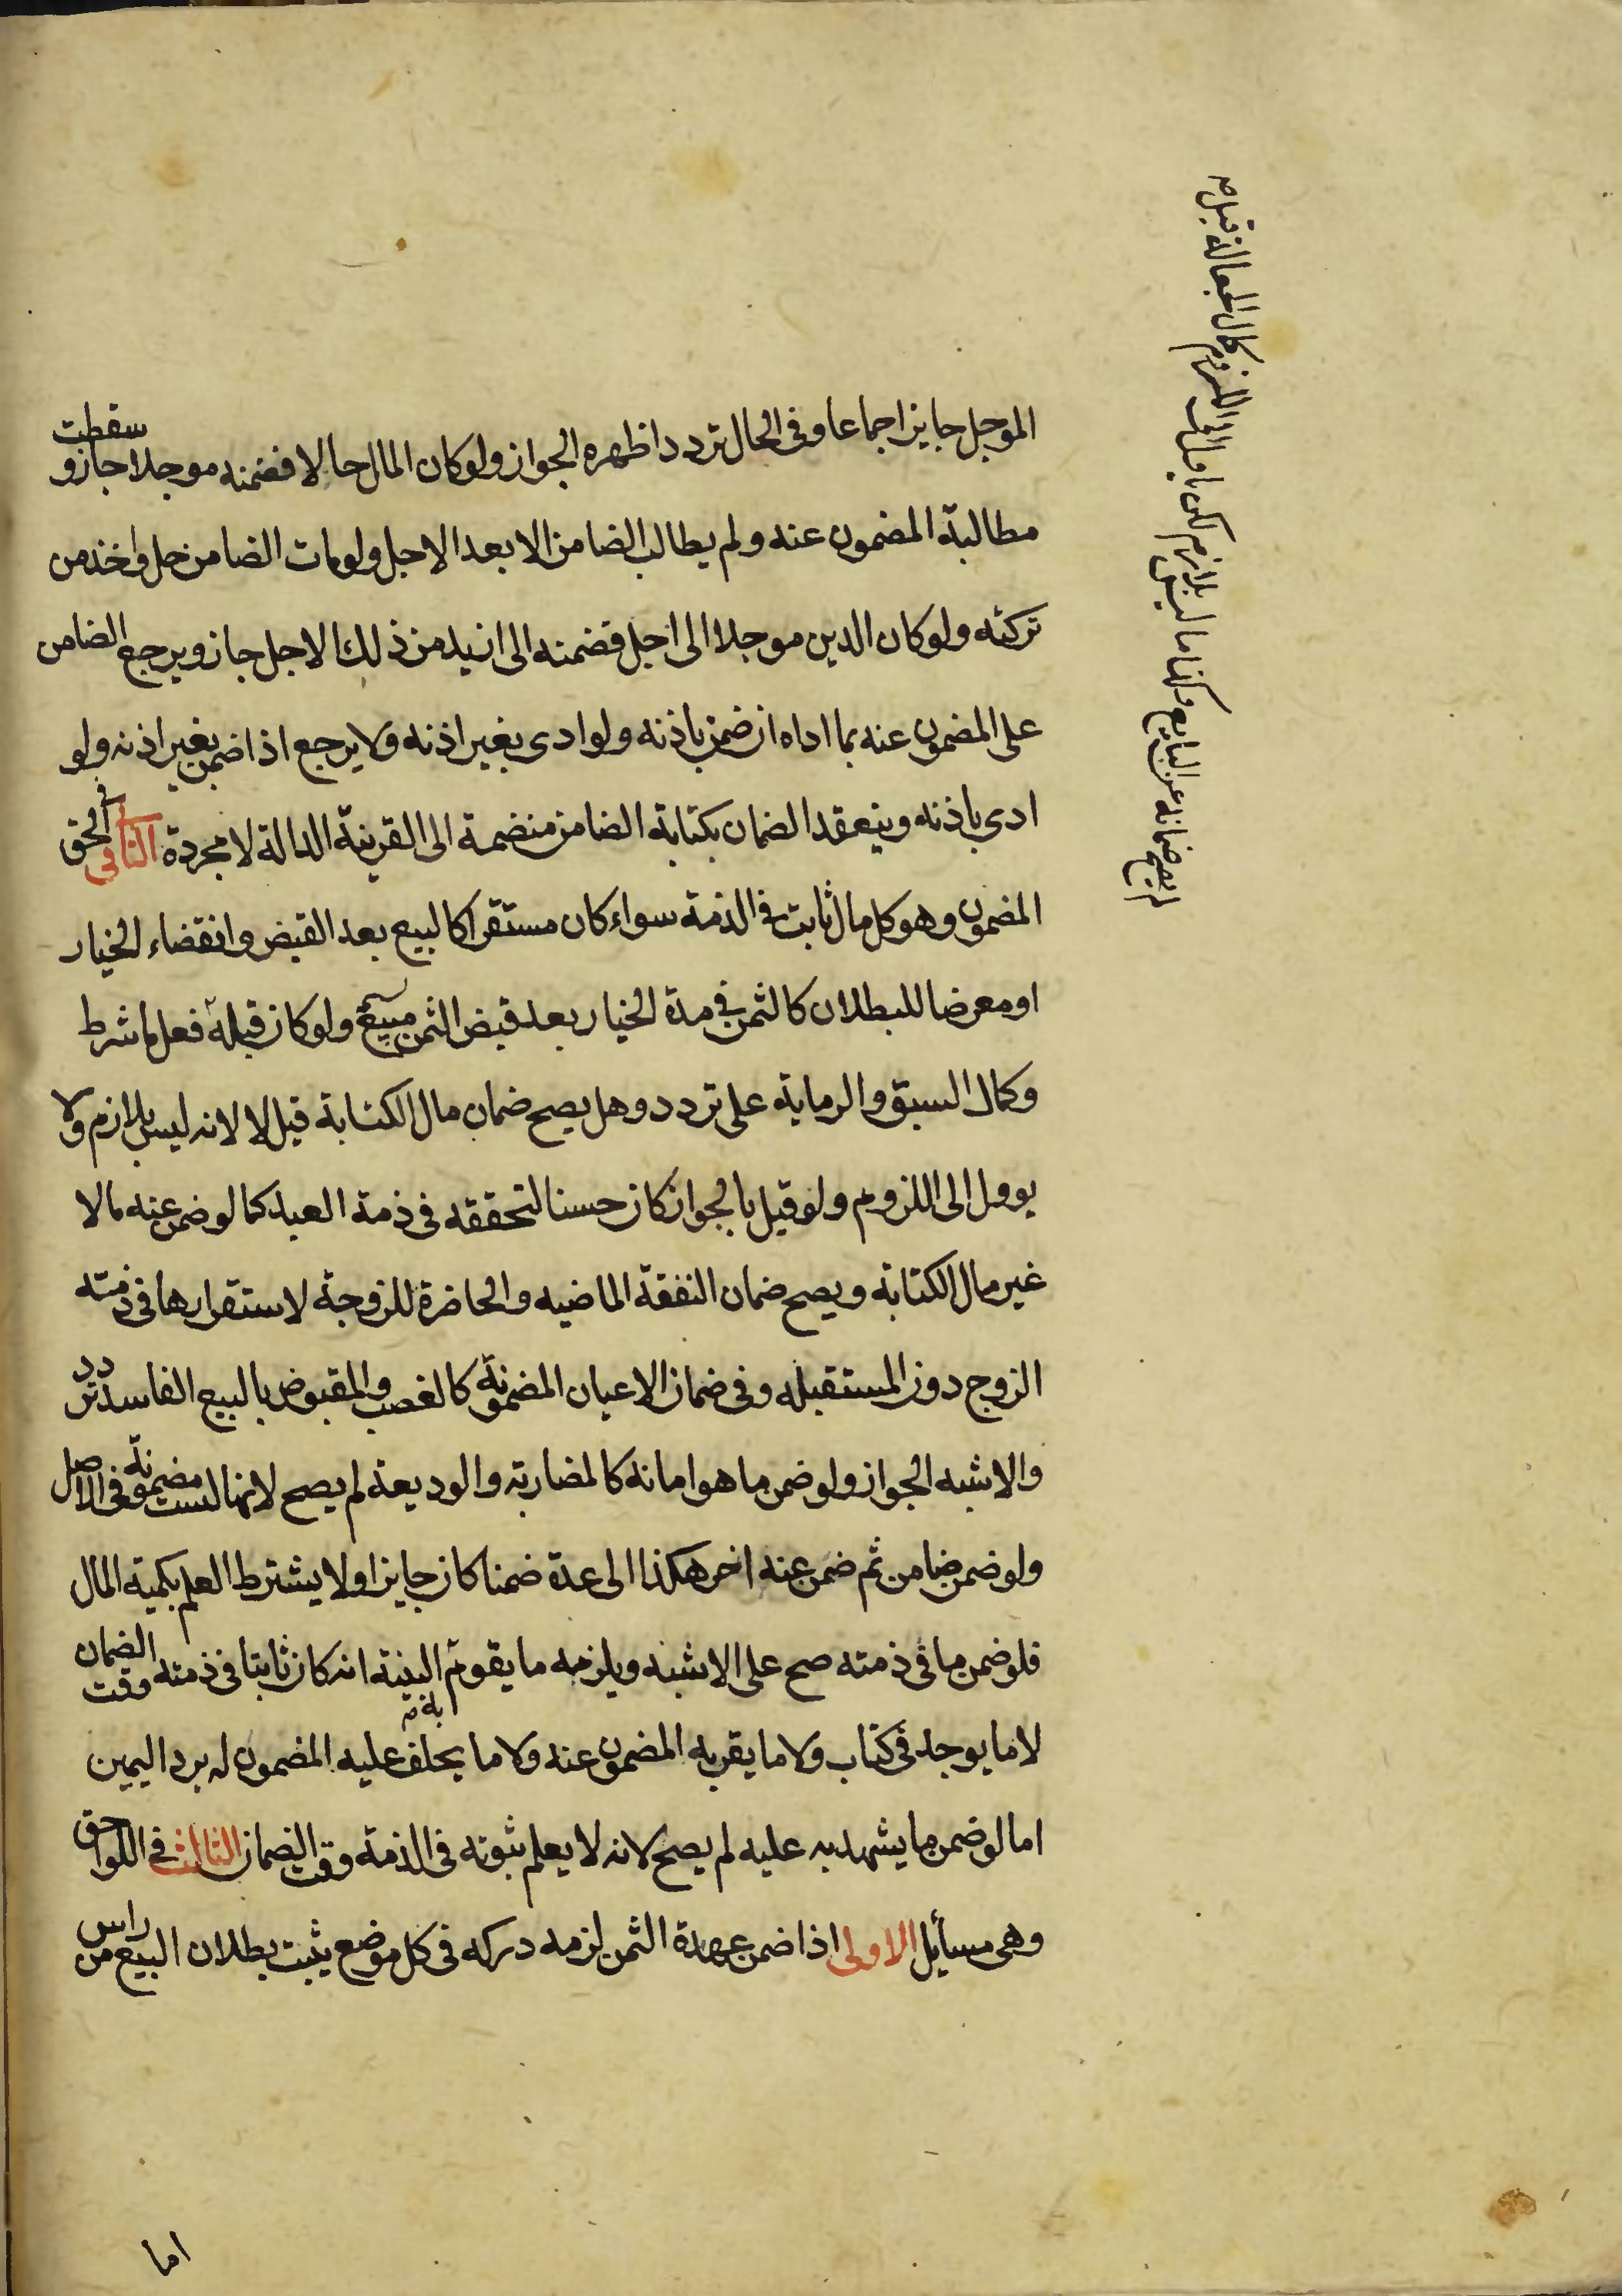 الموجل جايز اجماعا وفى الحال تردد اظهره الجواز ولو كان المال حالا فضمنه موجلا جاز و سقطت
مطالبة المضمون عنه ولم يطالب الضامن الا بعد الاجل ولو مات الضامن حل واخذ من
تركته ولو كان الدين موجلا الى اجل فضمنه الى ازيد من ذلك الاجل جاز ويرجع الضامن
على المضمون عنه بما اداه ان ضمن باذنه ولو ادى بغير اذنه ولا يرجع اذا ضمن بغير اذنه ولو
ادى باذنه وينعقد الضمان بكتابة الضامن منضمة الى القرينة الدالة لا مجردة الثانى فى الحق
المضمون وهو كل مال ثابت فى الذمة سواء كان مستقرا كالبيع بعد القبض وانقضاء الخيار
او معرضا للبطلان كالثمن فى مدة الخيار بعد قبض الثمن ولو كان قبله
وكمال السبق والرماية على تردد وهل يصح ضمان مال الكتابة قيل لا لانه ليس بلازم ولا
يوول الى اللزوم ولو قيل بالجواز كان حسنا لتحققه فى ذمة العبد كما لو ضمن عنه مالا
غير مال الكتابة ويصح ضمان النفقة الماضيه والحاضرة للزوجة لاستقرارها فى ذمته
الزوج دون المستقبله وفى ضمان الاعيان المضمونة كالغصب والمقبوض بالبيع الفاسد تردد
والاشبه الجواز ولو ضمن ما هو امانه كالمضاربة والوديعة لم يصح لانها ليست مضمونة فى الاصل
ولو ضمن ضامن ثم ضمن عنه اخر هكذا الى عدة ضمنا كان جايزا ولا يشترط العلم بكمية المال
فلو ضمن ما فى ذمته صح على الاشبه ويلزمه ما يقوم به البينة انه كان ثابتا فى ذمته وقت الضمان
لا ما يوجد فى كتاب ولا ما يقر به المضمون عنه ولا ما يحلف عليه المضمون له برد اليمين
اما لو ضمن ما يشهد به عليه لم يصح لانه لا يعلم ثبوته فى الذمة وقت الضمان الثالث فى اللواحق
وهى مسايل الاولى اذا ضمن عهدة الثمن لزمه دركه فى كل موضع يثبت بطلان البيع من راس
اما
لم يصح ضمانه عن البايع وكذا ما ليس بلازم لكن يا ول الى اللزوم كمال الجعالة قبل